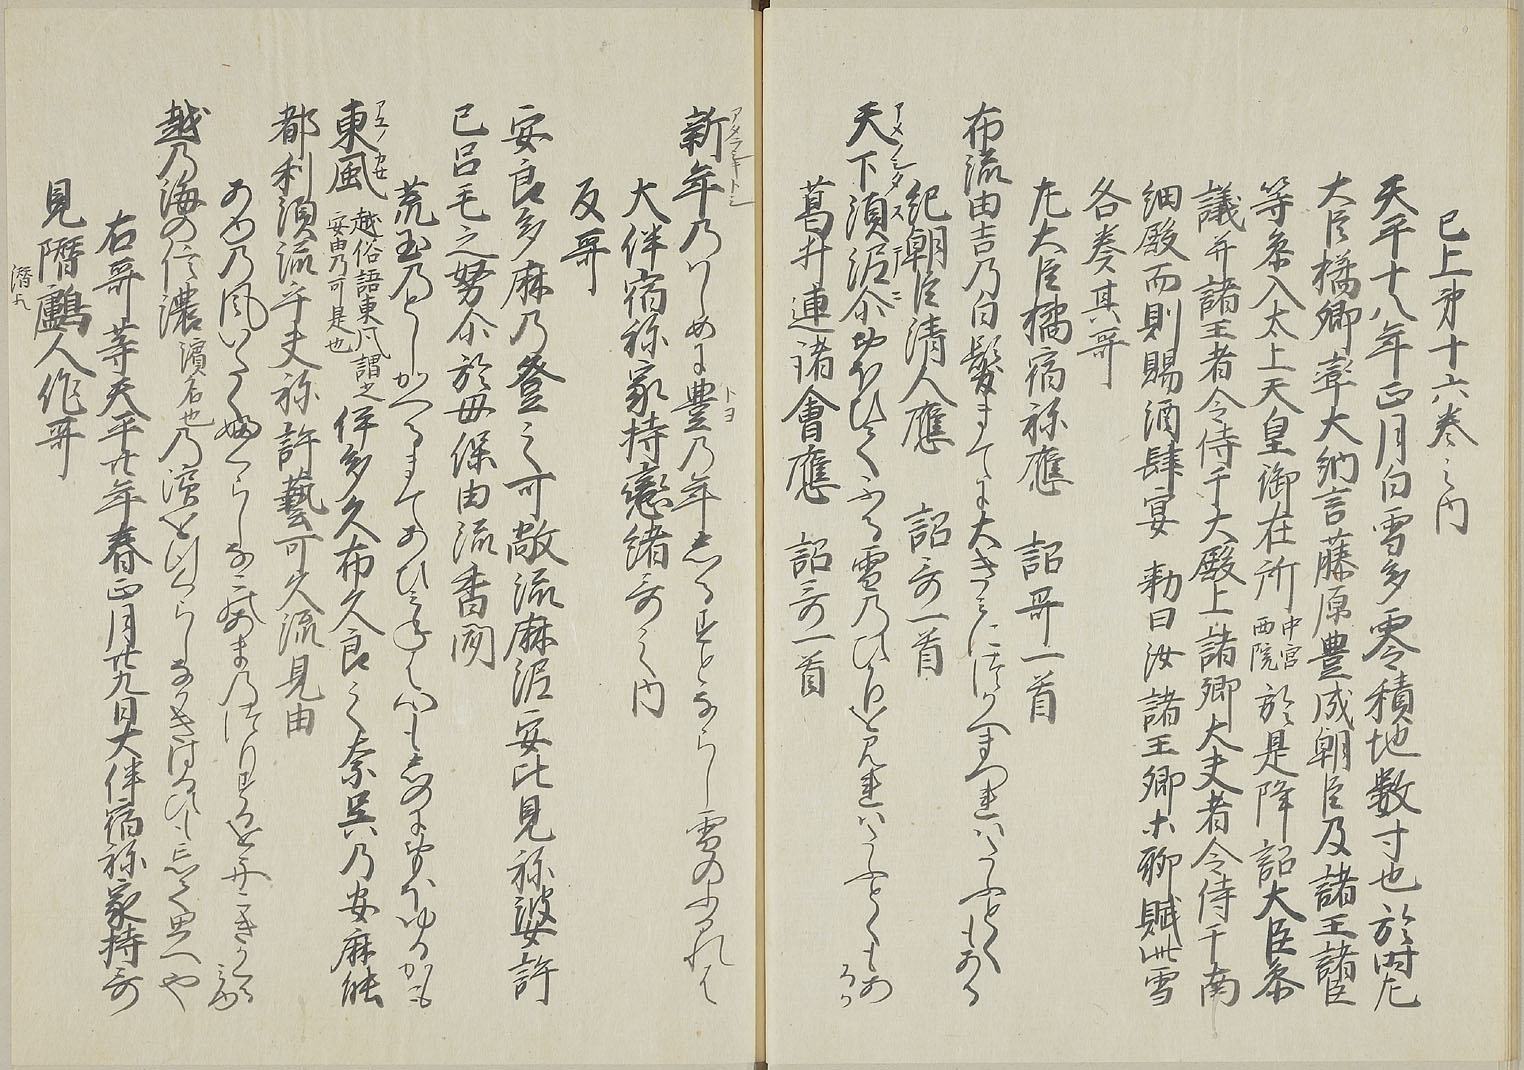 已上第十六巻之内
天平十八年正月白雪多零積地数寸也於時左
大臣橘卿率大納言藤原豊成朝臣及諸王諸臣
等参入太上天皇御在所中宮西院於是降詔大臣参
議并諸王者令侍于大殿上諸卿大夫者令侍于南
細殿而則賜酒肆宴 勅曰汝諸王卿ホ聊賦此雪
各奏其哥
左大臣橘宿祢應 詔哥一首
布流由吉乃白髪まてに大きみにつかへまつれはたふとくもある
紀朝臣清人應 詔哥一首
アメノシタステニ
天下須泥尓おほひてふる雪乃ひかりを見れはたふとくもあるか
葛井連諸會應 詔哥一首
アタラシキトシ トヨ
新年乃はしめに豊乃年しるすとならし雪のふれれは
大伴宿祢家持戀緒哥之内
反哥
安良多麻乃登之可敝流麻泥安比見祢婆許
己呂毛之努尓於母保由流香聞
荒玉乃としかへるまてあひみねは心もしのにおほゆるかも
アユノカセ
東風 越俗語東風謂之安由乃可是也 伊多久布久良之奈呉乃安麻能
都利須流乎夫祢許藝可久流見由
あゆの風いたくふくらしなこのあまのつりするを舟こきかくるみゆ
越乃海の信濃濱名也乃濱を行くらしなかきはるひも忘て思へや
右哥等天平廿年春正月廿九日大伴宿祢家持哥
見潜鸕人作哥
潜九